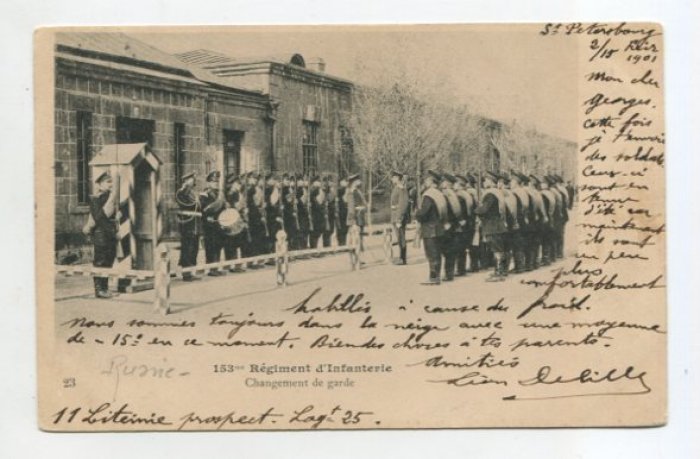 St Petersbourg
2/15 Févr
1901
Mon cher
Georges.
Cette fois
je t'envoie
des soldats
Ceux-ci
sont en
tenue
d'été car
maintenant
ils sont
un peu
plus
confortablement
habillés à cause du froid.
Nous sommes toujours dans la neige avec une moyenne
de -15° en ce moment. Bien des choses à tes parents.
Amitiés
Léon Delille
153me Régiment d'Infanterie
Changement de garde
23
Russie
11 Liteinie prospect. Logt 25.